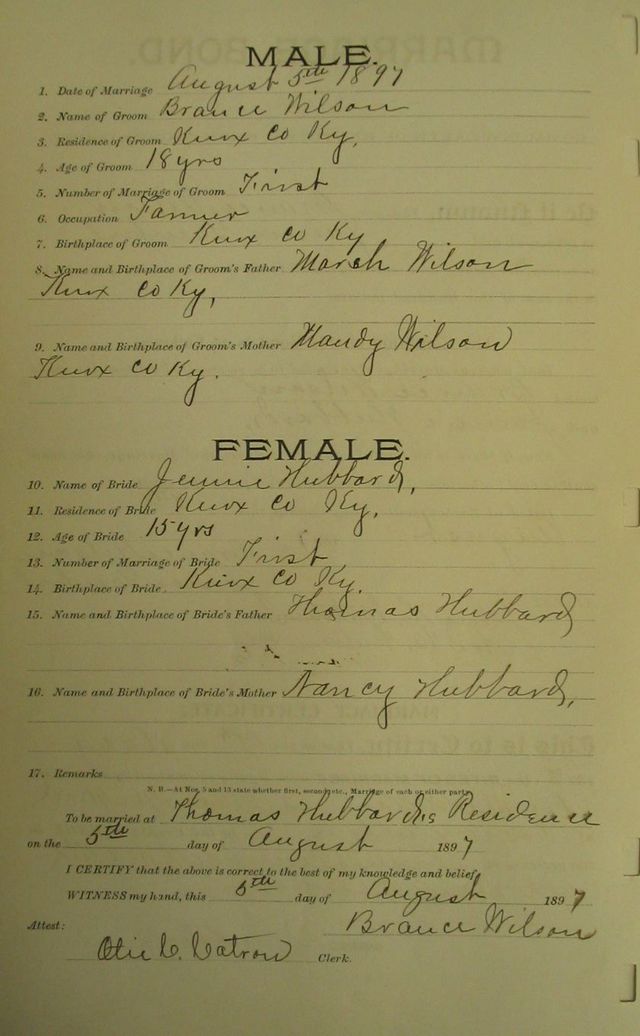 MALE.
1. Date of Marriage August 5th 1897
2. Name of Groom Brance Wilson
3. Residence of Groom Knox Co Ky,
4. Age of Groom 18 yrs
5. Number of Marriage of Groom First
6. Occupation Farmer
7. Birthplace of Groom Knox Co Ky
8. Name and Birthplace of Groom's Father March Wilson
Knox Co Ky,
9. Name and Birthplace of Groom's Mother Mandy Wilson
Knox Co Ky.
FEMALE.
10. Name of Bride Jennie Hubbard,
11. Residence of Bride Knox Co Ky,
12. Age of Bride 15 yrs
13. Number of Marriage of Bride First
14. Birthplace of Bride Knox Co Ky.
15. Name and Birthplace of Bride's Father Thomas Hubbard
16. Name and Birthplace of Bride's Mother Nancy Hubbard,
17. Remarks
N. B.—At Nos. 5 and 13 state whether first, second, etc., Marriage of each or either party.
To be married at Thomas Hubbards Residence
on the 5th day of August 1897
I CERTIFY that the above is correct to the best of my knowledge and belief.
WITNESS my hand, this 5th day of August 1897
Brance Wilson
Attest:
Catron Clerk.